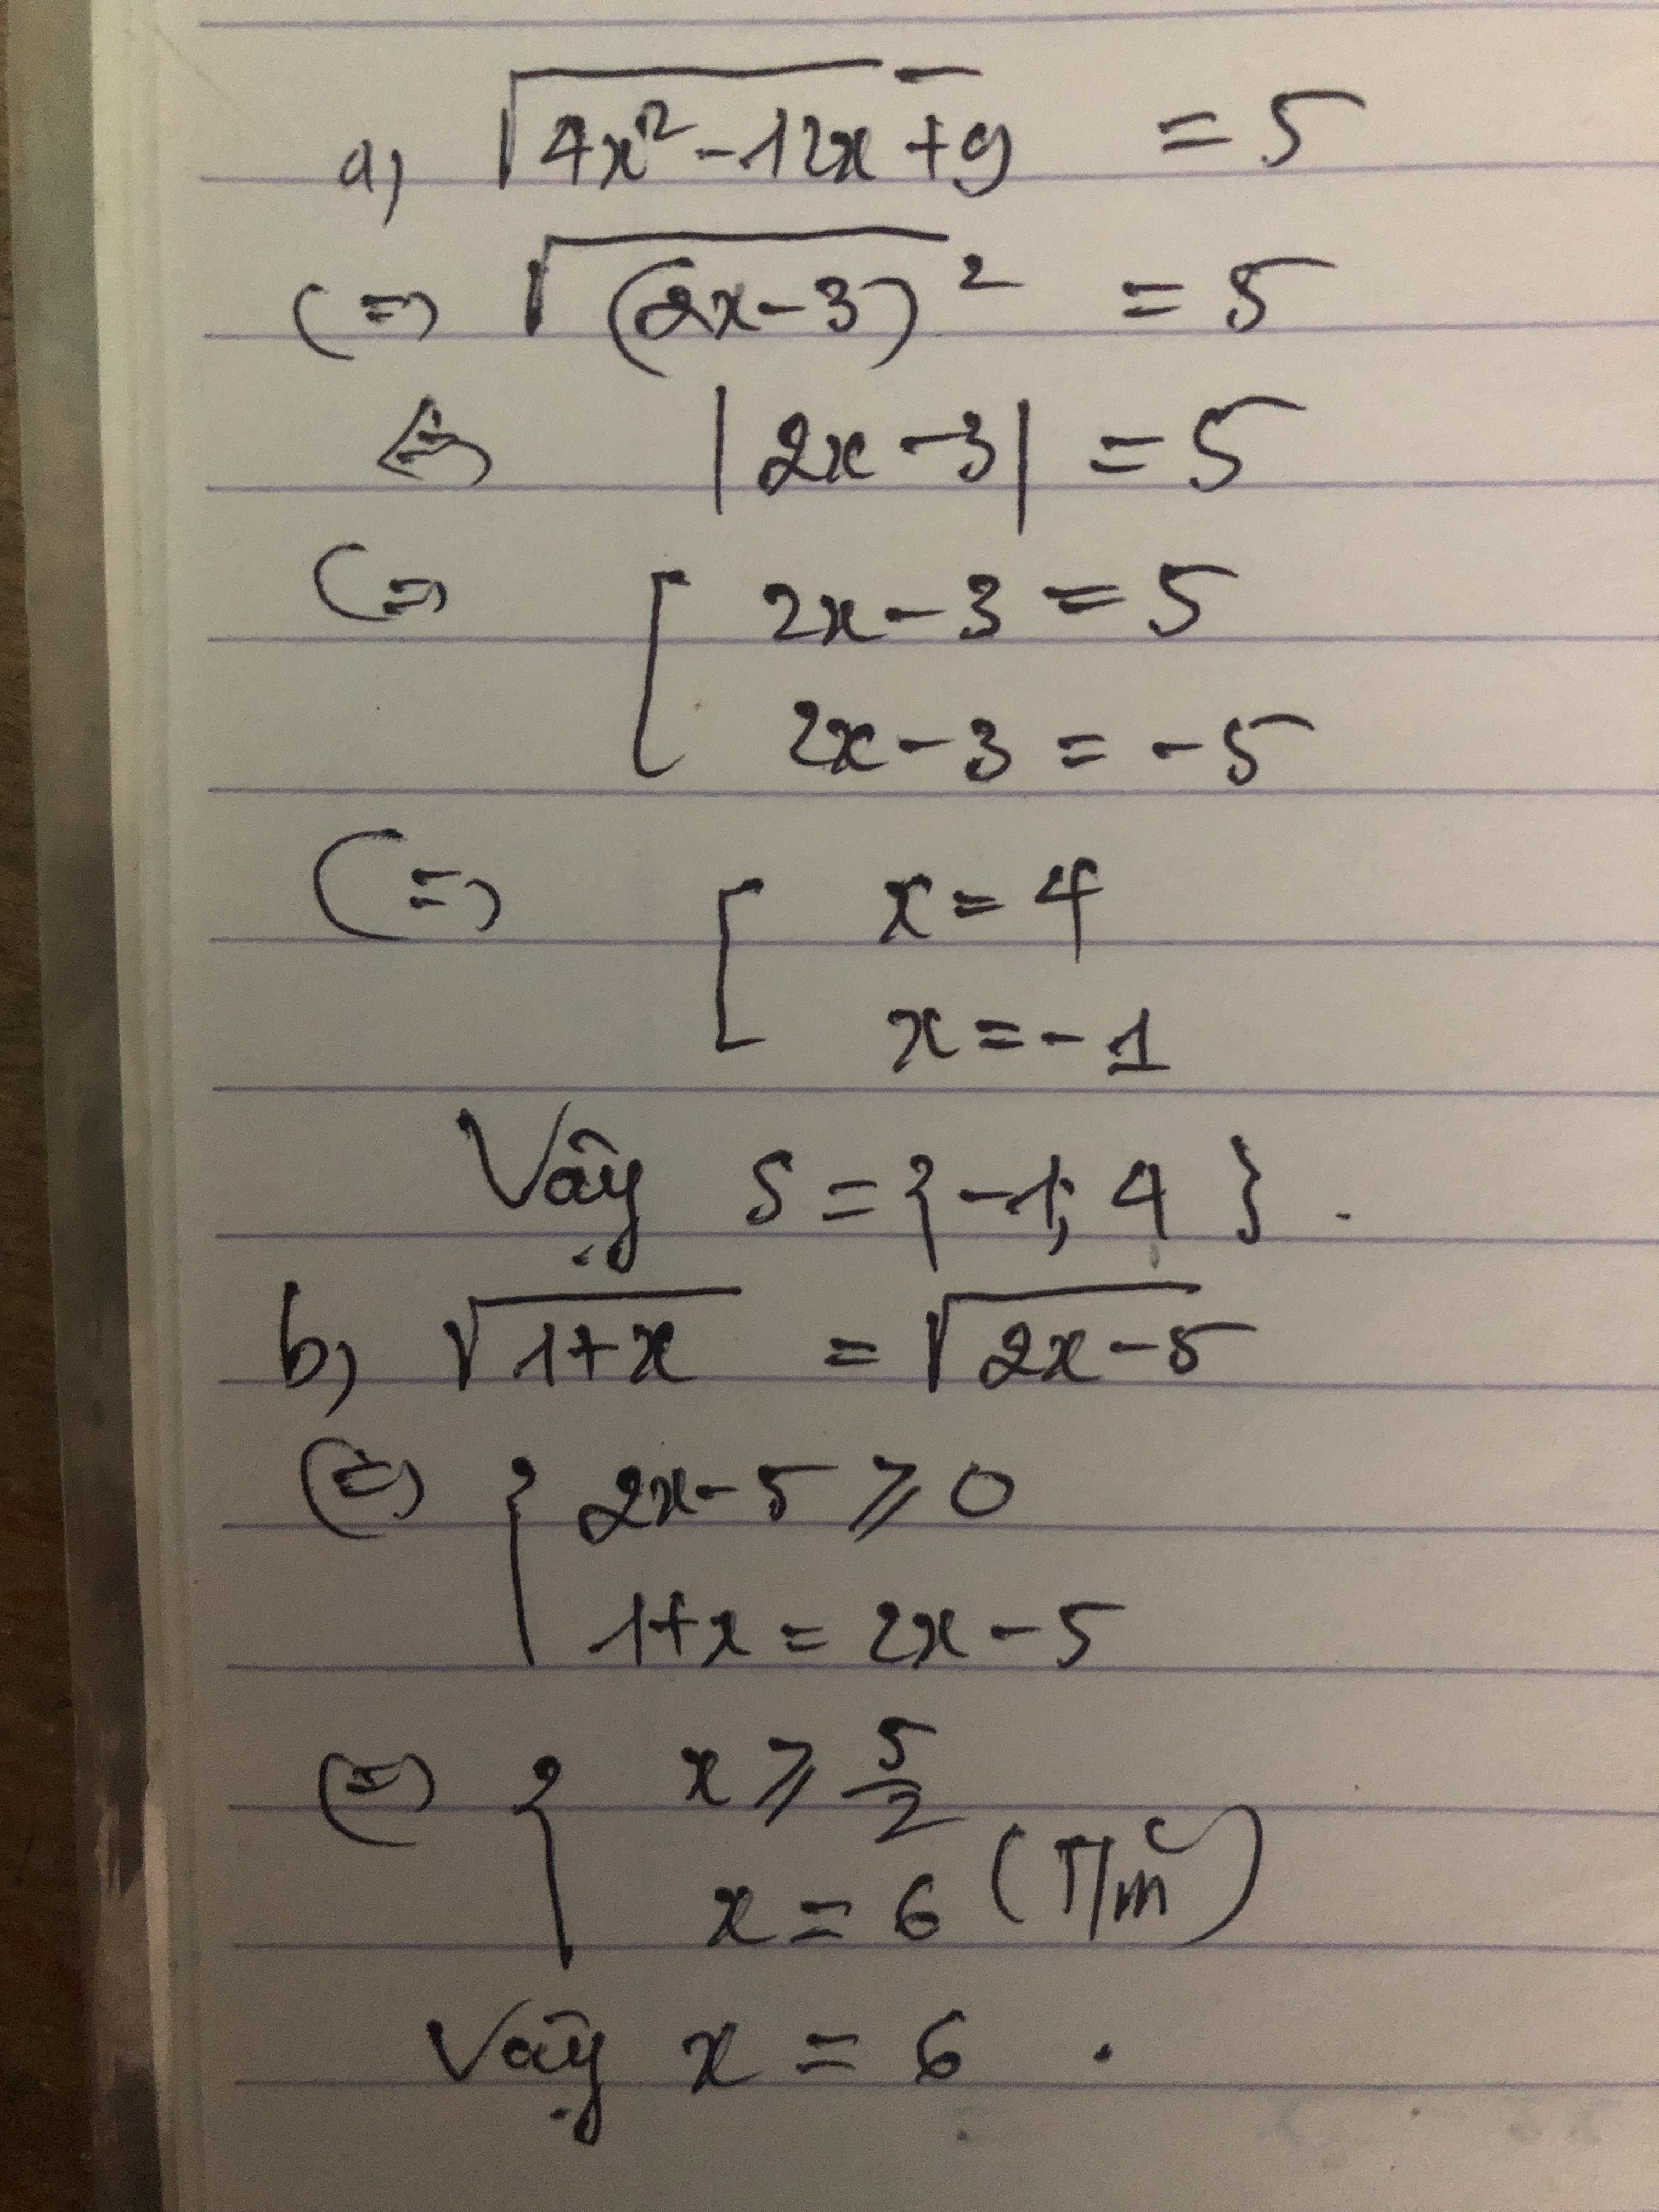 a) √(4x² - 12x + 9) = 5
<=> √(2x - 3)² = 5
<=> |2x - 3| = 5
<=> [ 2x - 3 = 5
2x - 3 = -5
<=> [ x = 4
x = -1
Vậy S = {-1; 4}.
b) √(1+x) = √(2x-5)
<=> { 2x - 5 ⩾ 0
1+x = 2x - 5
<=> { x ⩾ 5/2
x = 6 (T/m)
Vậy x = 6.